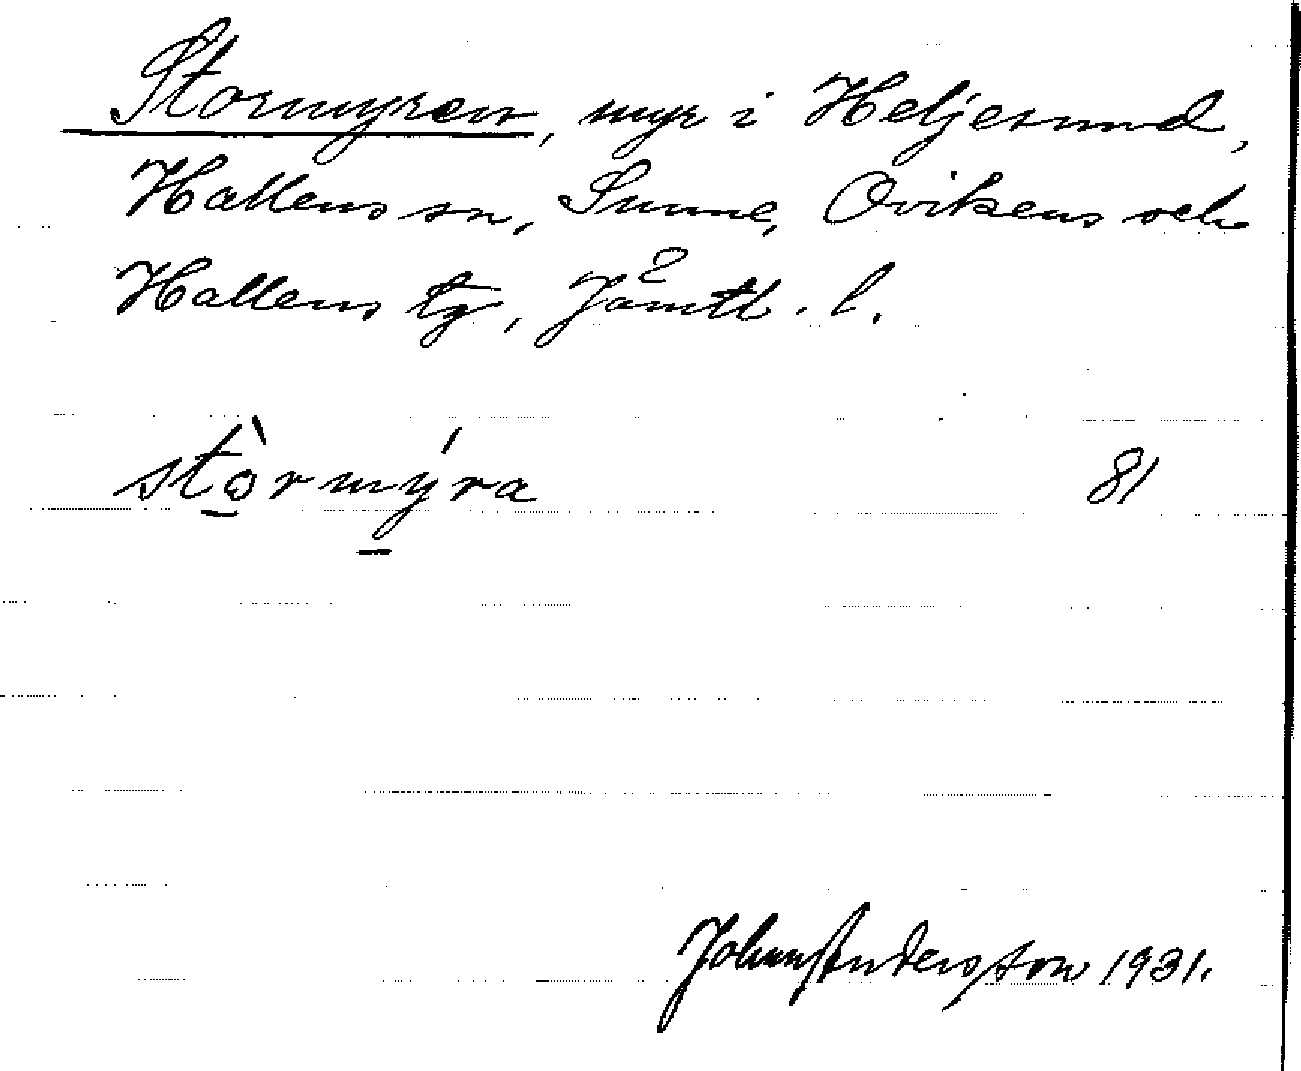 Stormyren, myr i Heljesund,
Hallens sn, Sunne, Ovikens och
Hallens tg, Jämtl. l.
stò̱rmý̱ra 81
Johan Andersson 1931.